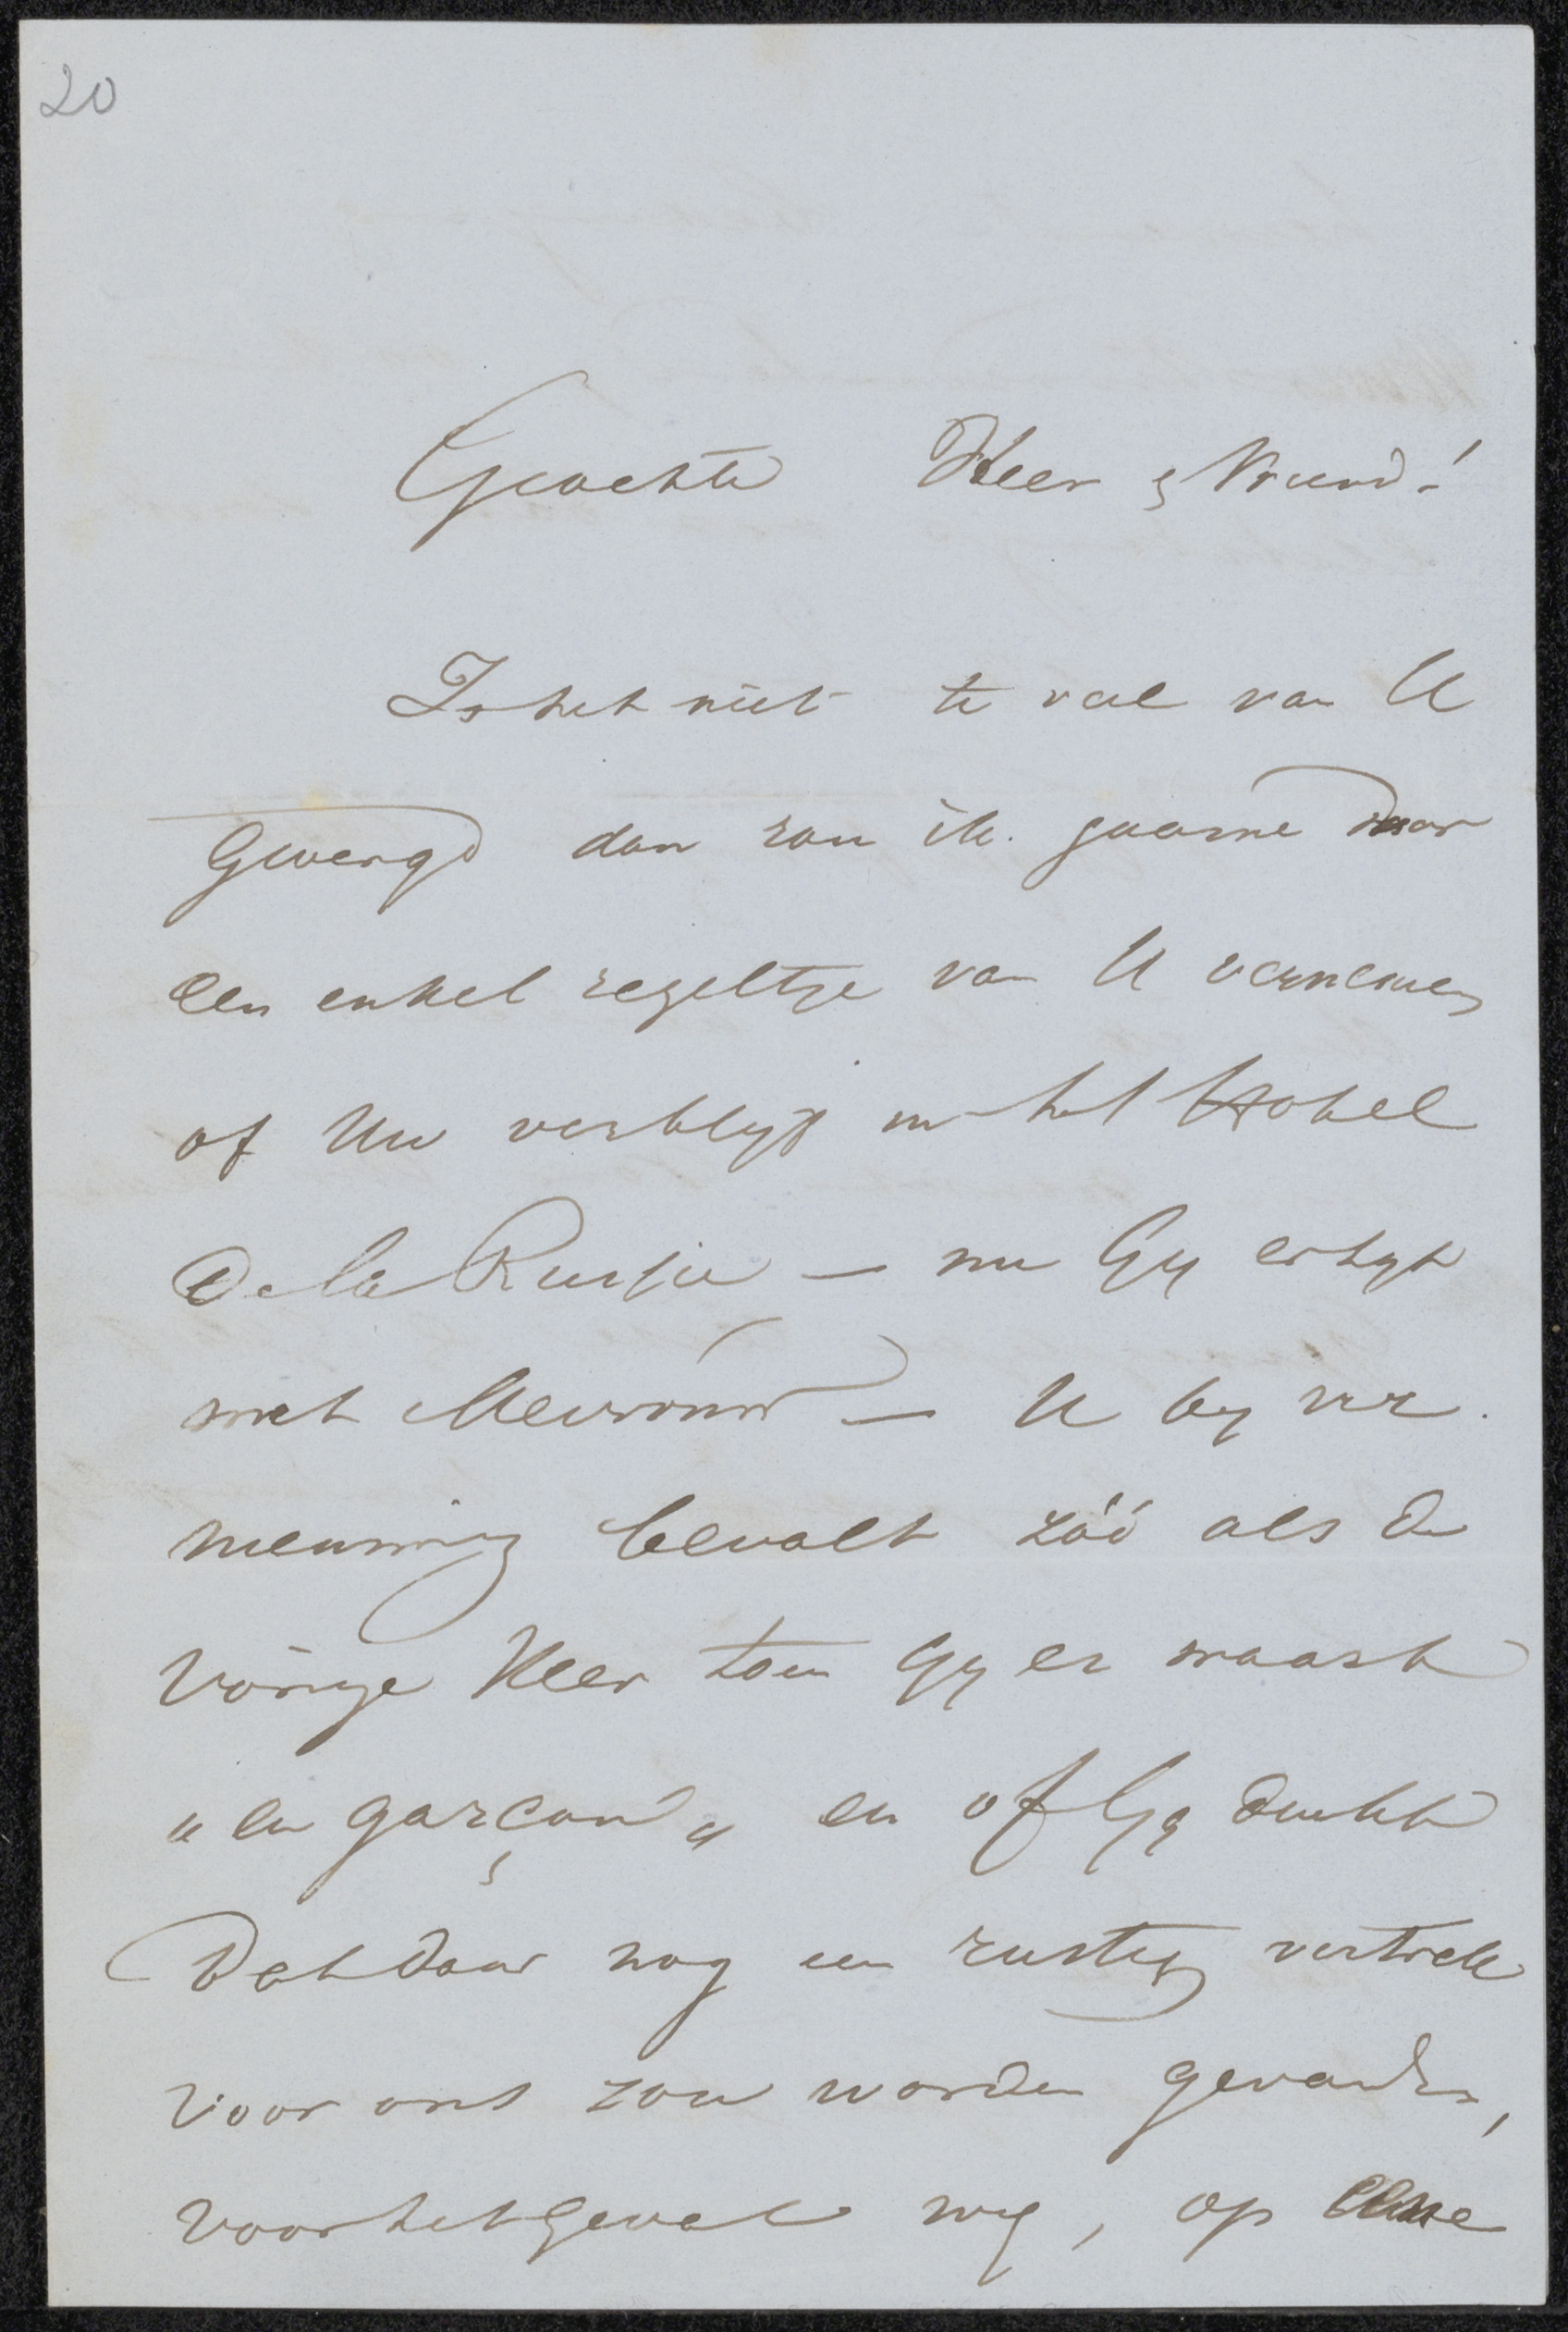 20
Geachte Heer & Vriend!
Is het niet te veel van U
Gevergd dan zou ik gaarne door
een enkel regeltje van U vernemen
of Uw verblyf in het Hotel
De la Russie — nu Gy er zyt
met Mevrouw — U by ver.
nieuwing bevalt zóó als de
vorige Keer toen Gy er waart
"en garçon" en of Gy denkt
Dat daar nog een rustig vertrek
voor ons zou worden gevonden,
voor het geval wy, op